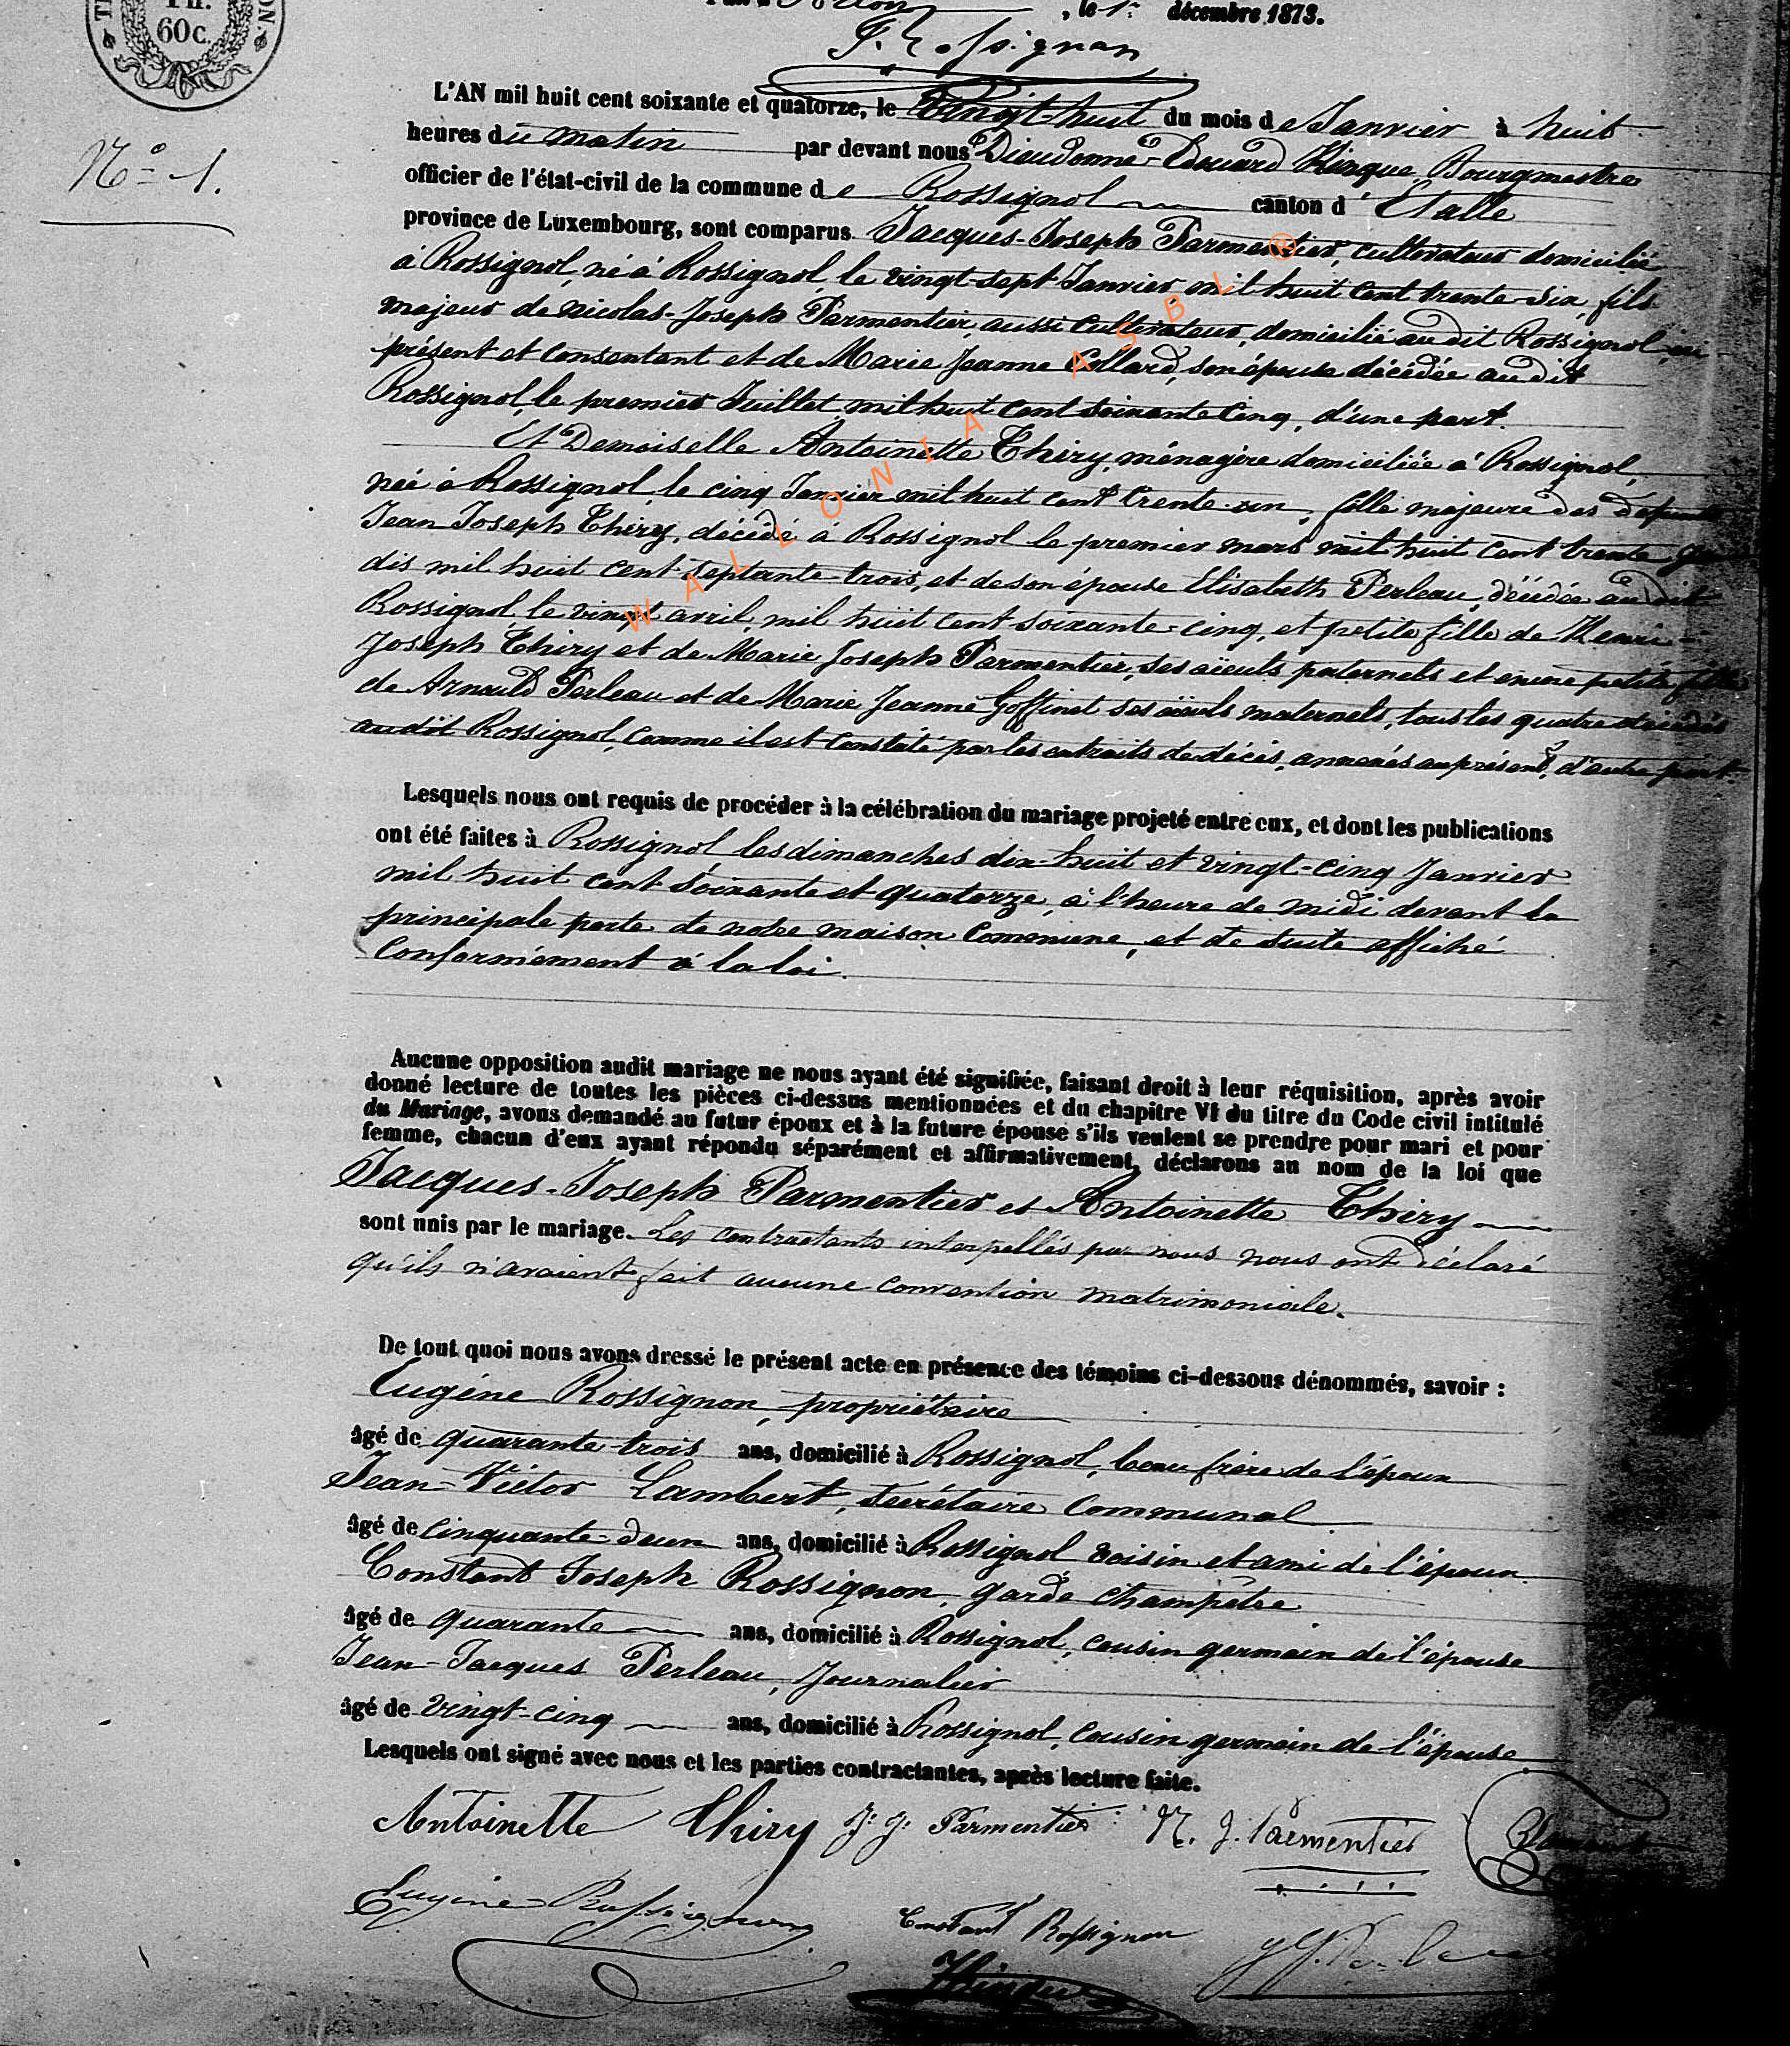 60c.
, le 1er décembre 1873.
N° 1.
L'AN mil huit cent soixante et quatorze, le Vingt-huit du mois de Janvier à huit
heures du matin par devant nous Dieudonné-Edouard Hinque, Bourgmestre
officier de l'état-civil de la commune de Rossignol canton d'Etalle
province de Luxembourg, sont comparus Jacques-Joseph Parmentier, cultivateur domicilié
à Rossignol, né à Rossignol, le vingt-sept Janvier mil huit cent trente-six, fils
majeur de Nicolas-Joseph Parmentier, aussi cultivateur, domicilié audit Rossignol, ici
présent et consentant et de Marie Jeanne Collard, son épouse décédée audit
Rossignol, le premier Juillet mil huit cent soixante cinq, d'une part.
Et Demoiselle Antoinette Thiry, ménagère domiciliée à Rossignol,
née à Rossignol, le cinq Janvier mil huit cent trente-un, fille majeure des défunts
Jean Joseph Thiry, décédé à Rossignol le premier mars mil huit cent trente
dis mil huit cent septante-trois, et de son épouse Elisabeth Perleau, décédée audit
Rossignol, le vingt avril, mil huit cent soixante-cinq, et petite fille de Henri-
Joseph Thiry et de Marie Joseph Parmentier, ses aïeuls paternels et encore petite fille
de Arnould Perleau et de Marie Jeanne Goffinet ses aïeuls maternels, tous les quatre décédés
audit Rossignol, comme il est constaté par les extraits de décès, annexés au présent, d'autre part.
Lesquels nous ont requis de procéder à la célébration du mariage projeté entre eux, et dont les publications
ont été faites à Rossignol, les dimanches dix-huit et vingt-cinq Janvier
mil huit cent soixante et quatorze, à l'heure de midi devant la
principale porte de notre maison Commune, et de suite affiché
Conformément à la loi.
Aucune opposition audit mariage ne nous ayant été signifiée, faisant droit à leur réquisition, après avoir
donné lecture de toutes les pièces ci-dessus mentionnées et du chapitre VI du titre du Code civil intitulé
du Mariage, avons demandé au futur époux et à la future épouse s'ils veulent se prendre pour mari et pour
femme, chacun d'eux ayant répondu séparément et affirmativement, déclarons au nom de la loi que
Jacques-Joseph Parmentier et Antoinette Thiry
sont unis par le mariage. Les contractants interpellés par nous nous ont déclaré
qu'ils n'avaient fait aucune convention matrimoniale.
De tout quoi nous avons dressé le présent acte en présence des témoins ci-dessous dénommés, savoir :
Eugène Rossignon, propriétaire
âgé de quarante-trois ans, domicilié à Rossignol, beau frère de l'époux
Jean-Victor Lambert, secrétaire communal
âgé de cinquante-deux ans, domicilié à Rossignol voisin et ami de l'époux.
Constant Joseph Rossignon, garde champêtre
âgé de quarante ans, domicilié à Rossignol, cousin germain de l'épouse
Jean-Jacques Perleau, Journalier
âgé de vingt-cinq ans, domicilié à Rossignol, cousin germain de l'épouse
Lesquels ont signé avec nous et les parties contractantes, après lecture faite.
Antoinette Thiry J. J. Parmentier N. J. Parmentier
Eugène Rossignon Constant Rossignon J J. Perleau
Hinque
WALLONIA ASBL ®